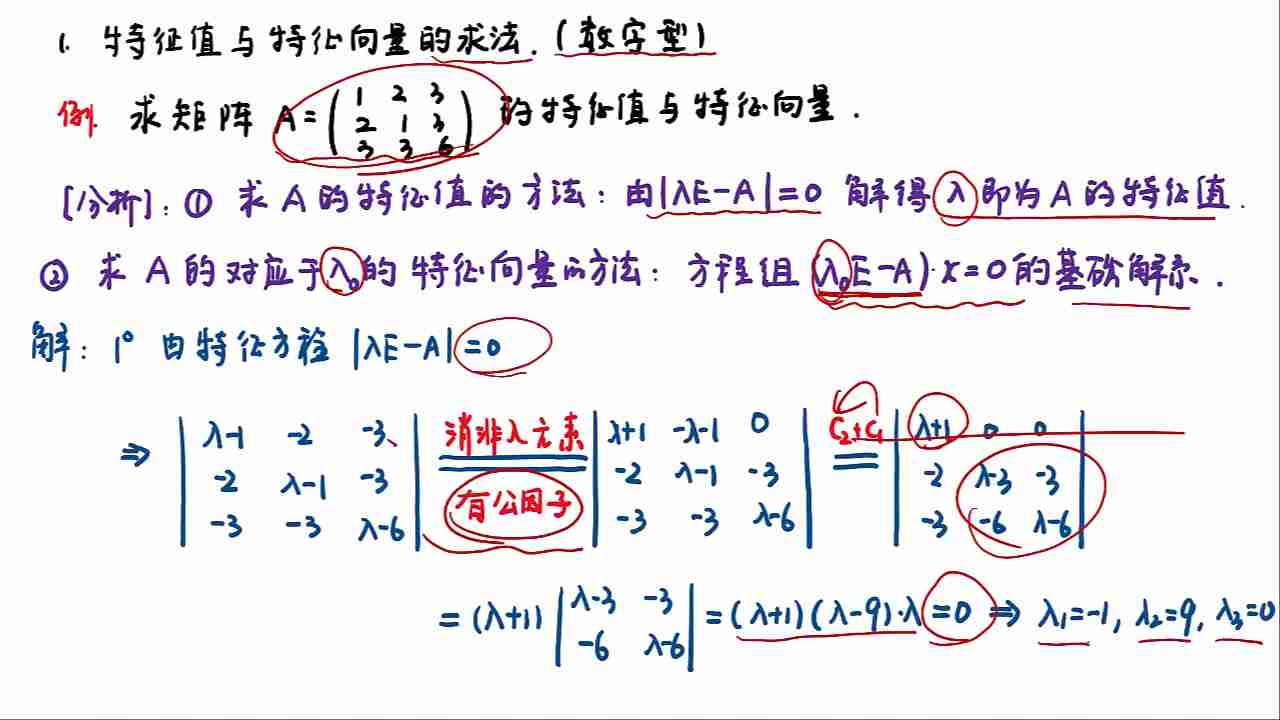 1. 特征值与特征向量的求法.(数字型)
例. 求矩阵 A=(1 2 3; 2 1 3; 3 3 6) 的特征值与特征向量.
[分析]: ① 求 A 的特征值的方法: 由|λE-A|=0 解得 λ 即为 A 的特征值.
② 求 A 的对应于λ₀的特征向量的方法: 方程组 (λ₀E-A)·x=0 的基础解系.
解: 1° 由特征方程 |λE-A|=0
⇒ |λ-1 -2 -3; -2 λ-1 -3; -3 -3 λ-6| 消非λ元素 有公因子 |λ+1 -λ-1 0; -2 λ-1 -3; -3 -3 λ-6| C₂+C₁ |λ+1 0 0; -2 λ-3 -3; -3 -6 λ-6|
=(λ+1)|λ-3 -3; -6 λ-6|=(λ+1)(λ-9)·λ=0 ⇒ λ₁=-1, λ₂=9, λ₃=0